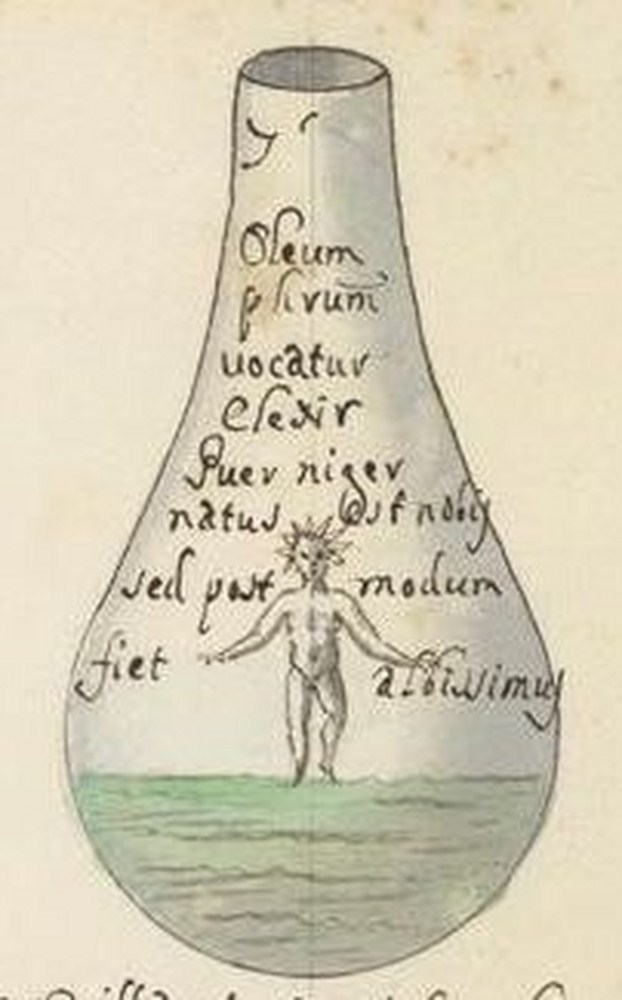 Oleum
phrum̃
vocatur
Elexir
Puer niger
natus Est nobis
sed post modum
fiet albissimus